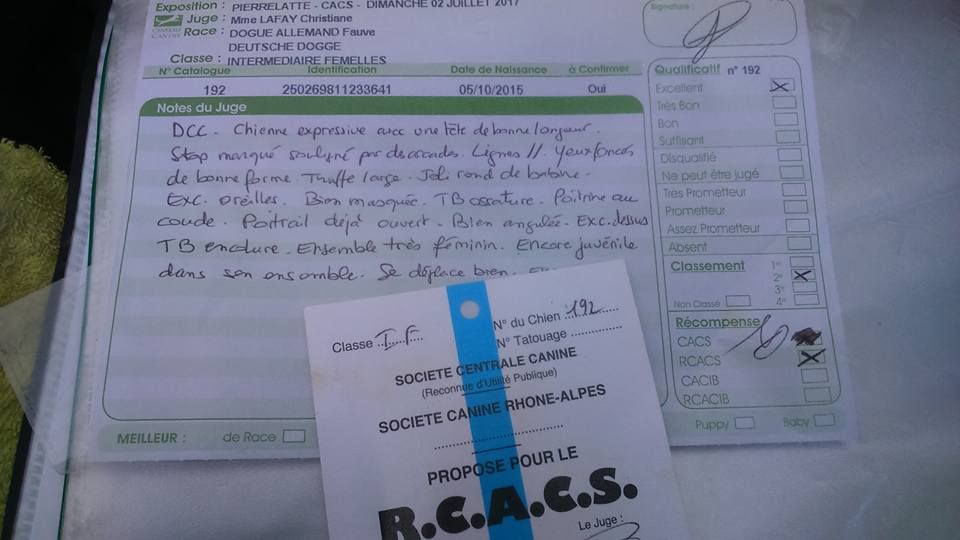 Exposition : PIERRELATTE - CACS - DIMANCHE 02 JUILLET 2017
Juge : Mme LAFAY Christiane
Race : DOGUE ALLEMAND Fauve
DEUTSCHE DOGGE
Classe : INTERMEDIAIRE FEMELLES
Signature :
N° Catalogue Identification Date de Naissance à Confirmer
192 250269811233641 05/10/2015 Oui
Notes du Juge
DCC. Chienne expressive avec une tête de bonne longueur.
Stop marqué souligné par des arcades. Lignes //. Yeux foncés
de bonne forme. Truffe large. Joli rond de babine.
Exc. oreilles. Bien masquée. TB ossature. Poitrine au
coude. Poitrail déjà ouvert. Bien angulée. Exc. dessus
TB encolure. Ensemble très féminin. Encore juvénile
dans son ensemble. Se déplace bien.
Qualificatif n° 192
Excellent
Très Bon
Bon
Suffisant
Disqualifié
Ne peut être jugé
Très Prometteur
Prometteur
Assez Prometteur
Absent
Classement 1er
2e
3e
Non Classé 4e
Récompense
CACS
RCACS
CACIB
RCACIB
MEILLEUR : de Race Puppy Baby
Classe I.F N° du Chien 192
N° Tatouage
SOCIETE CENTRALE CANINE
(Reconnue d'Utilité Publique)
SOCIETE CANINE RHONE-ALPES
PROPOSE POUR LE
R.C.A.C.S.
Le Juge :